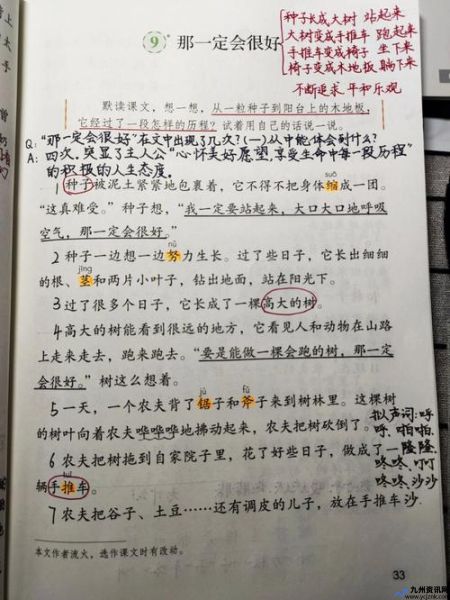 种子长成大树 站起来
大树变成手推车 跑起来
手推车变成椅子 坐下来
椅子变成木地板 躺下来
不断追求 平和乐观
9 那一定会很好
默读课文，想一想，从一粒种子到阳台上的木地板，
它经过了一段怎样的历程？试着用自己的话说一说。
Q："那一定会很好"在文中出现了几次？(一)从中能体会到什么？
A：四次，突显了主人公"心怀美好愿望，享受生命中每一段历程"
的积极的人生态度。
suō
1 种子被泥土紧紧地包裹着，它不得不把身体缩成一团。
"这真难受。"种子想，"我一定要站起来，大口大口地呼吸
空气，那一定会很好。"
nǔ
2 种子一边想一边努力生长。过了些日子，它长出细细
jīng
的根、茎和两片小叶子，钻出地面，站在阳光下。
3 过了很多个日子，它长成了一棵高大的树。
4 高大的树能看到很远的地方，它看见人和动物在山路
上走来走去，跑来跑去。"要是能做一棵会跑的树，那一定
会很好。"树这么想着。
jù fǔ
5 一天，一个农夫背了锯子和斧子来到树林里。这棵树
的树叶向着农夫哗哗哗地拂动起来，农夫把树砍倒了。
拟声词：呼
呼、啪啪、
隆隆、
咚咚、叮叮
咚咚、沙沙
沙
6 农夫把树拖到自家院子里，花了好些日子，做成了一
tuī
辆手推车。
7 农夫把谷子、土豆……还有调皮的儿子，放在手推车
本文作者流火，选作课文时有改动。
33
九州资讯网
www.ycjznk.com